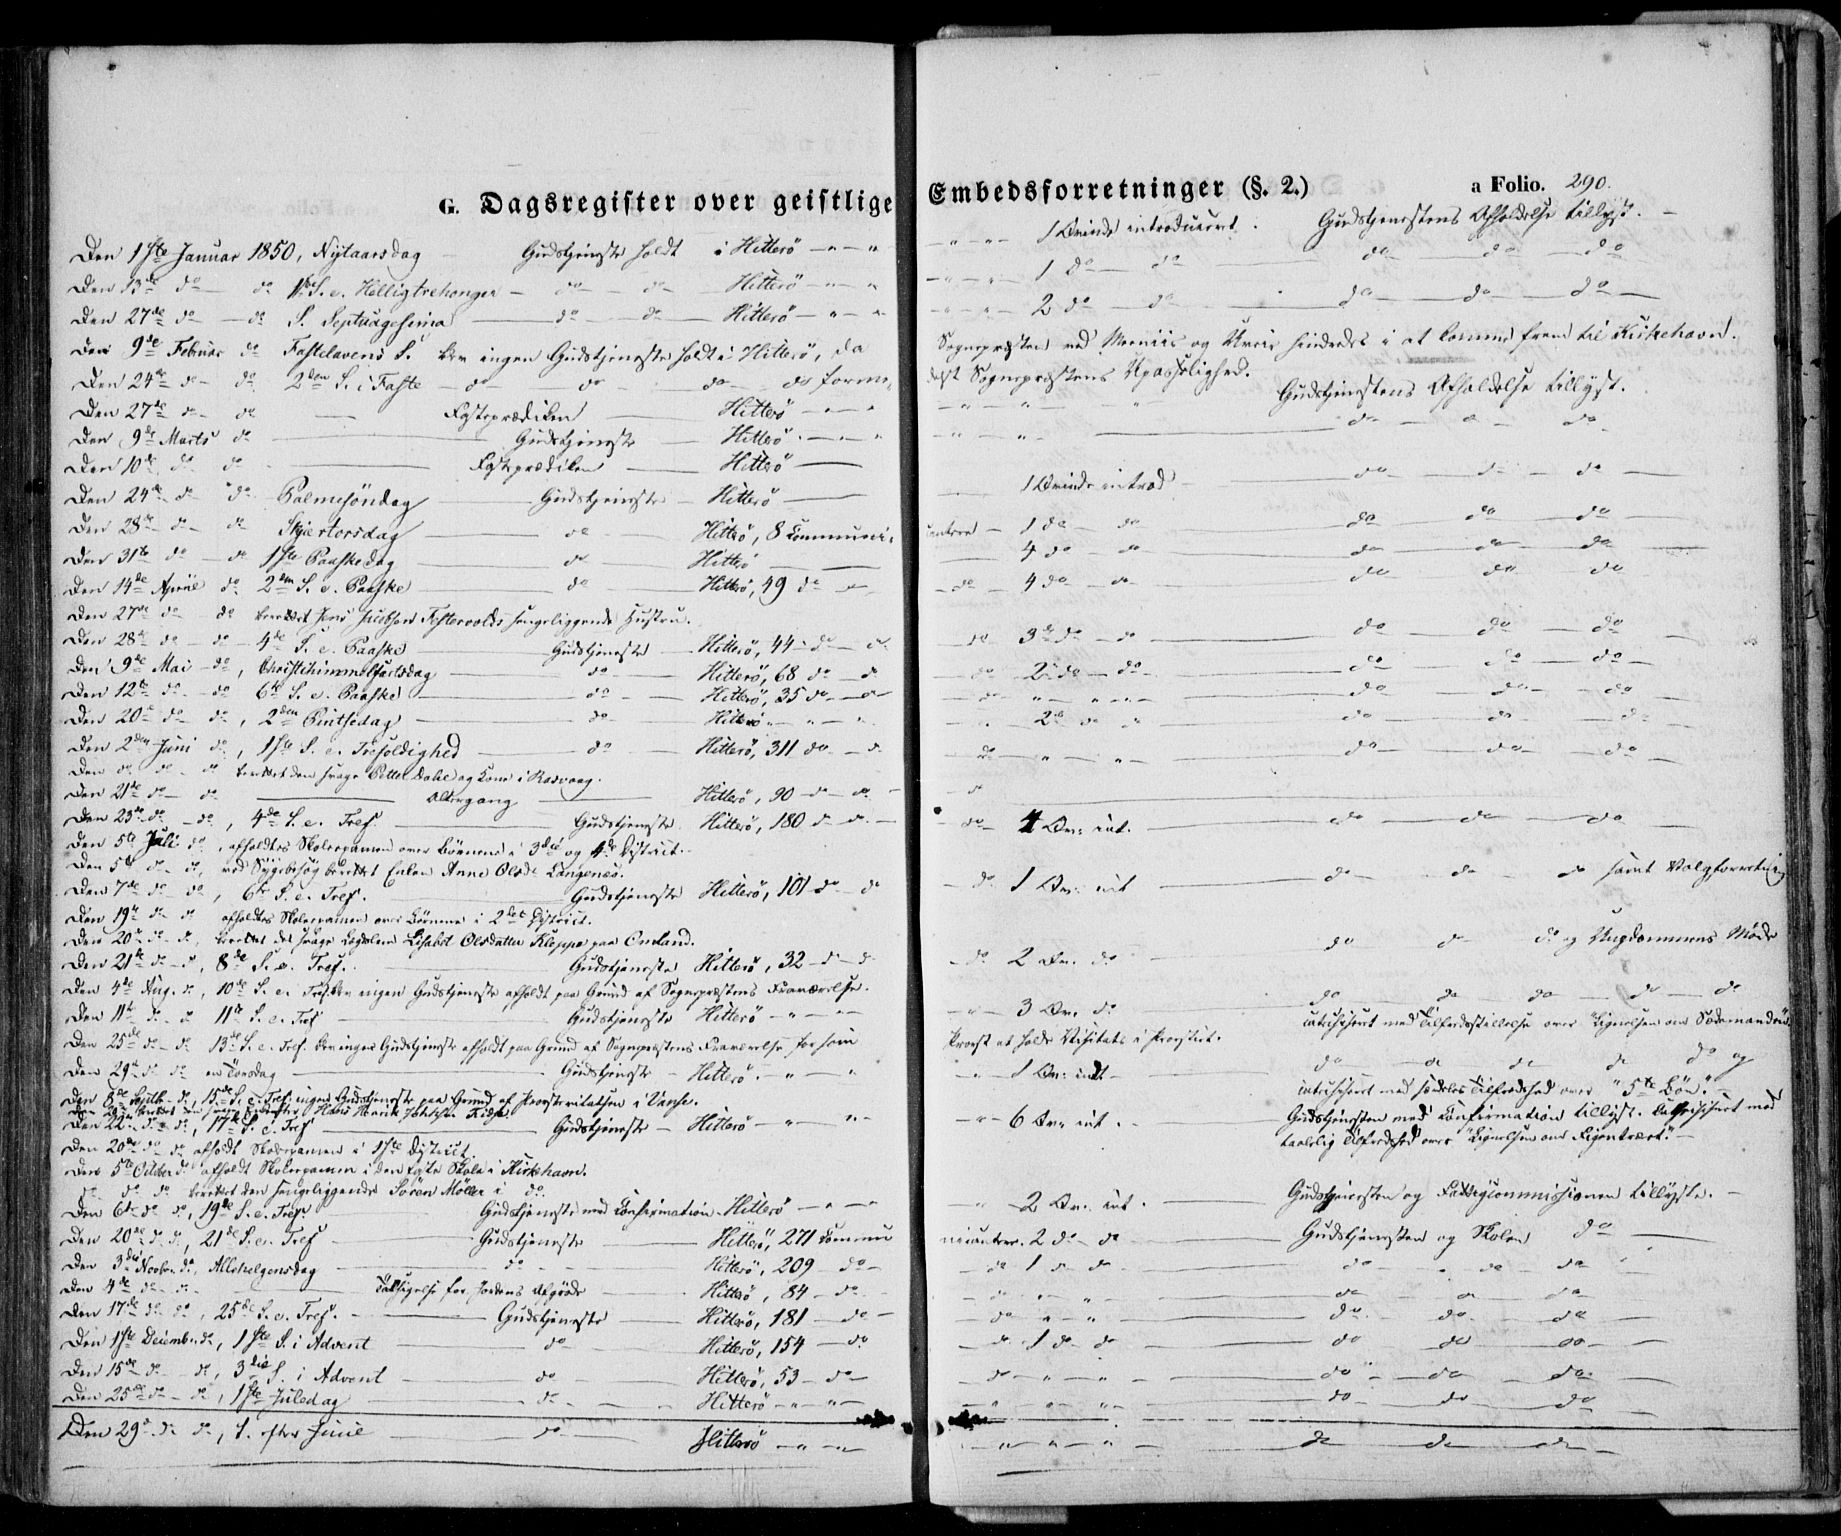 G. Dagsregister over geistlige Embedsforretninger (§. 2.) a Folio. 290.
Den 1ste Januar 1850, Nytaarsdag — Gudstjeneste holdt i Hitterö — " — " — " — 1 Qvinde introduceret. Gudstjenestens Afholdelse tillyst. —
Den 13de do — do 1ste S. e. Helligtrekonger — do — do — Hitterö — " — " — 1 do — do — do — do — do
Den 27de do — do S. Septuagesima — do — do — Hitterö — " — " — 2 do do — do — do — do —
Den 9de Februar do Fastelavens S. blev ingen Gudstjeneste holdt i Hitterö, da Sognepræsten ved og hindredes i at komme frem til Kirkehavn.
Den 24de do — do 2den S. i Faste — do do do do formedelst Sognepræstens Upasselighed.
Den 27de do — do — Fasteprædiken — Hitterö — " — " Gudstjenestens Afholdelse tillyst.
Den 9de Marts do — Gudstjeneste — Hitterö. — " — " — do — do — do
Den 10de do do — Fasteprædiken — Hitterö —
Den 24de do — do Palmesöndag — Gudstjeneste — Hitterö — 1 Qvinde introd — do — do — do —
Den 28de do — do Skjertorsdag — do — Hitterö, 8 Communicantere — 1 do — do — do — do — do
Den 31te do — do 1ste Paaskedag — do — Hitterö — 4 do — do — do — do — do —
Den 14de April do 2den S. e. Paaske — do — Hitterö, 49 do — do — 4 do — do — do — do — do
Den 27de do do berettet Jens Jacobsen sengeliggende Hustru.
Den 28de do — do — 4de S. e. Paaske — Gudstjeneste — Hitterö, 44 — do — do 3 do — do — do — do — do —
Den 9de Mai — do, Christihimmelfartsdag — do — Hitterö, 68 do — do 2 do — do — do — do — do —
Den 12te do — do 6te S. e. Paaske — do — Hitterö, 35 do — do — " — " — do — do — do —
Den 20de do — do, 2den Pintsedag — do — Hitterö — " — " — 2 do " — do — do — do —
Den 2den Juni do, 1ste S. e. Trefoldighed — do — Hitterö, 311 do — do — " — " — do — do — do
Den do do — do berettet den svage Petter Dahl og Kone i Rasvaag.
Den 21de do — do — Altergang — Hitterö, 90 — do — do —
Den 23de do — do, 4de S. e. Tref. — Gudstjeneste Hitterö, 180 do — do — 4 Qv: int. — do — do — do —
Den 5te Juli do, afholdtes Skoleexamen over Börnene i 3die og 4de District.
Den 5te do — do, ved Sygebesög berettet Enken Anne Olsdr Langenæs.
Den 7de do — do, 6te S. e. Tref. — Gudstjeneste Hitterö, 101 do — do 1 Qv: int — do — do — do samt Valgforretning
Den 19de do — do afholdtes Skoleexamen over Börnene i 2det District.
Den 20de do — do, berettet den svage Lisabet Olsdatter Kleppe paa Omland.
Den 21de do — do, 8de S. e. Tref. — Gudstjeneste Hitterö, 32 — do — do 2 Qv. do — do do — do og Ungdommens Möde
Den 4de Aug. do, 10de S. e. Tref. blev ingen Gudstjeneste afholdt paa Grund af Sognepræstens Fraværelse.
Den 11te do — do 11te S. e. Tref — Gudstjeneste Hitterö — " — " — 3 Qv. do — do — do — do — do — do
catechiseret med Tilfredsstillelse over "Lignelsen om Sædemanden"
Den 25de do — do 13de S. e. Tref. blev ingen Gudstjeneste afholdt paa Grund af Sognepræstens Fraværelse for som Provst at holde Visitats i Provstiet.
Den 29de do do en Torsdag — Gudstjeneste — Hitterö. — " — " — 1 Qv: indt — do — do do do do og
catechiseret med Tilfredshed over "5te Bön". —
Den 8de Septbr — do, 15de S. e. Tref. ingen Gudstjeneste paa Grund af Provstevisitatsen i Vanse.
Den berettet den svage Hans Henrik
Den 22de do do, 17de S. e. Tref — Gudstjeneste — Hitterö — " — " — 6 Qv: int. — Gudstjenesten med Confirmation tillyst. Catechiseret med
taalelig Tilfredshed over "Lignelsen om Figentræet". —
Den 20de do do afholdt Skoleexamen i 1ste District.
Den 5te October do afholdt Skoleexamen i den faste Skole i Kirkehavn.
do do do berettet den sengeliggende Sören Möller i do.
Den 6te do do, 19de S. e. Tref — Gudstjeneste med Confirmation — Hitterö — " — " — 2 Qv: int. — Gudstjenesten og Fattigcommissionen tillyste. —
Den 20de do do, 21de S. e. Tref — Gudstjeneste — Hitterö, 271 Communicantere. 2 do — do — Gudstjenesten og Skolen do —
Den 3die Novbr. do, Allehelgensdag — do — Hitterö, 209 — do — do 1 do do — do — do — do
Den 4de do — do — Taksigelse for Jordens Afgröde — Hitterö, 84 — do — " — " — do — do — do
Den 17de do do, 25de S. e. Tref. — Gudstjeneste — Hitterö, 181 — do — do — " — " — do — do — do
Den 1ste Decembr. do, 1ste S. i Advent — do — Hitterö, 154 — do — do 1 do — do — do — do — do —
Den 15de do — do, 3die S. i Advent — do — Hitterö, 53 — do — do — " — " — do — do — do
Den 25de do — do, 1ste Juledag — do — Hitterö — " — " — " — " — do — do — do
Den 29de do do, S. efter Juul — do — Hitterö — " — " — " — " — do — do — do —